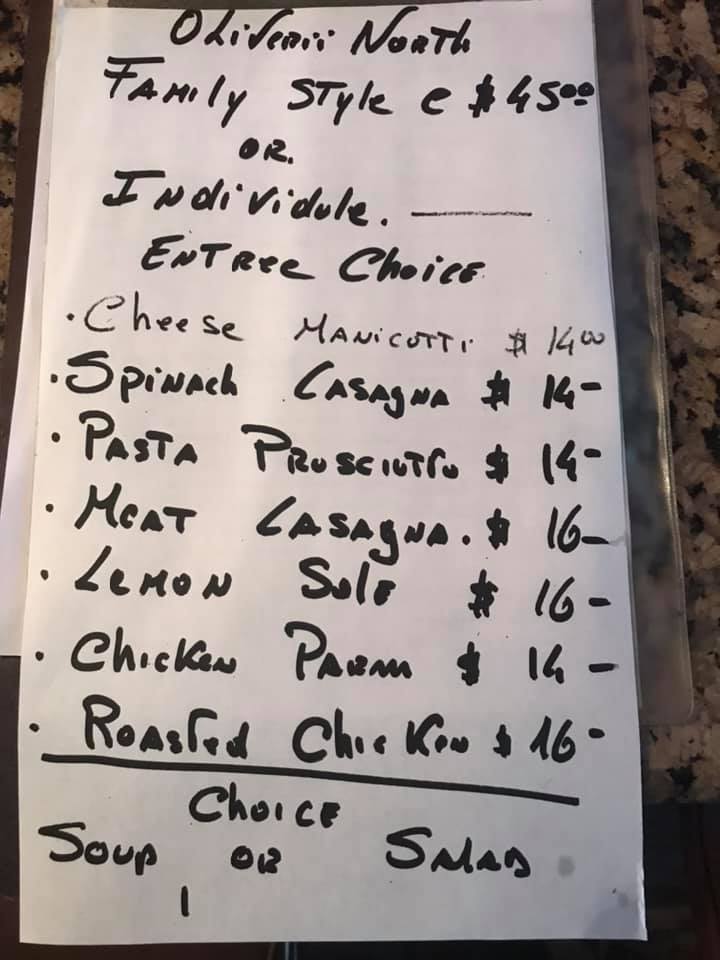 Oliverii North
Family Style @ $45.00
or.
Individule. ———
Entree Choice
· Cheese Manicotti $ 14.00
· Spinach Lasagna $ 14-
· Pasta Prosciutto $ 14-
· Meat Lasagna. $ 16-
· Lemon Sole $ 16-
· Chicken Parm $ 14-
· Roasted Chicken $ 16-
Choice
Soup or Salad
1